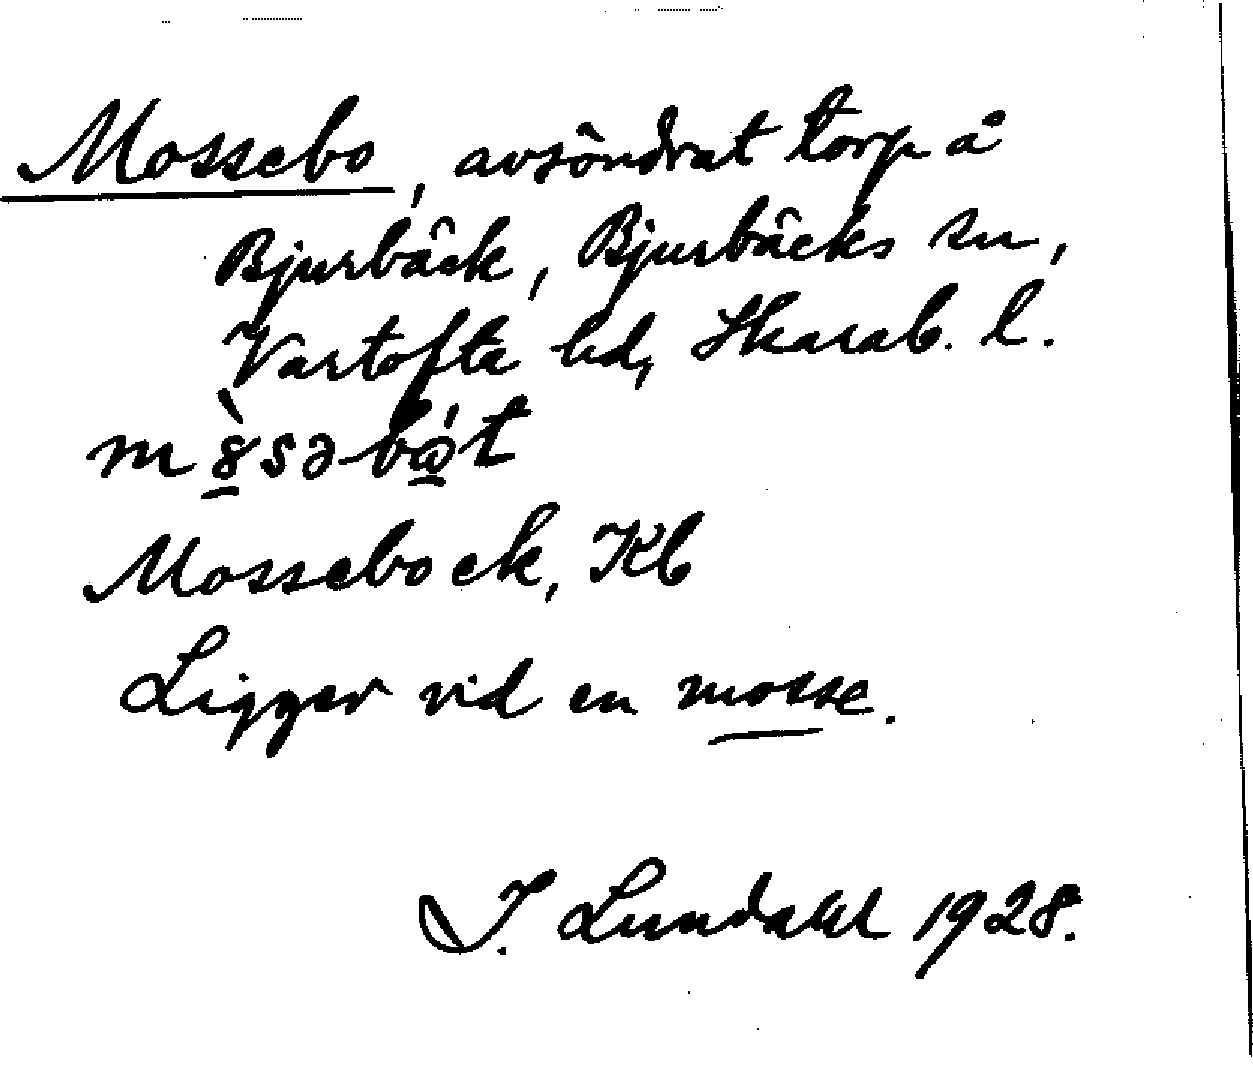 Mossebo, avsöndrat torp å
Bjurbäck, Bjurbäcks sn,
Vartofta hd, Skarab. l.
Mossebock, Kb
Ligger vid en mosse.
I. Lundahl 1928.